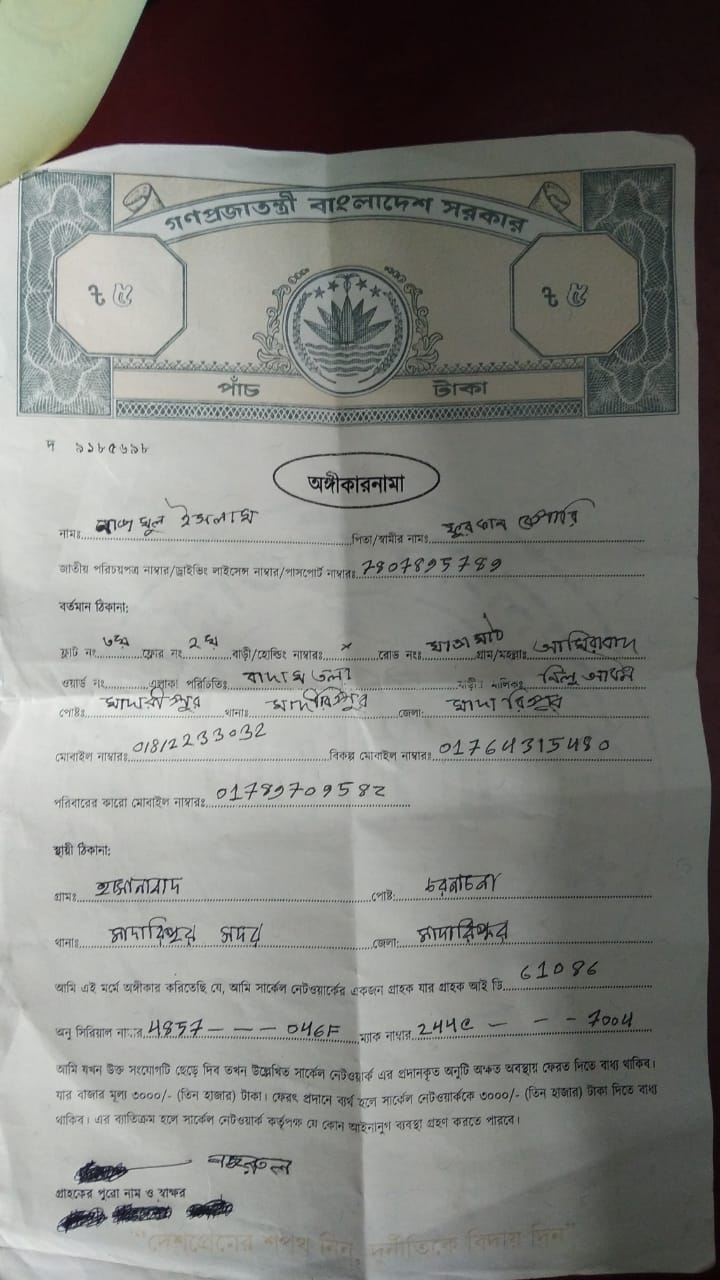 গণপ্রজাতন্ত্রী বাংলাদেশ সরকার
৳ ৫ ৳ ৫
পাঁচ টাকা
দ ৯১৮৫৬৯৮
অঙ্গীকারনামা
নামঃ নাজমুল ইসলাম পিতা/স্বামীর নামঃ ফুরকান বেপারি
জাতীয় পরিচয়পত্র নাম্বার/ড্রাইভিং লাইসেন্স নাম্বার/পাসপোর্ট নাম্বারঃ 7807895789
বর্তমান ঠিকানা:
ফ্লাট নং ৩য় ফ্লোর নং ২য় বাড়ী/হোল্ডিং নাম্বারঃ × রোড নংঃ গ্রাম/মহল্লাঃ আমিরাবাদ
ওয়ার্ড নং এলাকা পরিচিতিঃ বাদাম তলা বাড়ী মালিকঃ
পোষ্টঃ মাদারীপুর থানাঃ মাদারিপুর জেলা: মাদারিপুর
মোবাইল নাম্বারঃ 01812233032 বিকল্প মোবাইল নাম্বারঃ 01764315480
পরিবারের কারো মোবাইল নাম্বারঃ 01789709582
স্থায়ী ঠিকানা:
গ্রামঃ হাসানাবাদ পোষ্ট: চরনাচনা
থানাঃ মাদারিপুর সদর জেলা: মাদারিপুর
আমি এই মর্মে অঙ্গীকার করিতেছি যে, আমি সার্কেল নেটওয়ার্কের একজন গ্রাহক যার গ্রাহক আই ডি 61086
অনু সিরিয়াল নাম্বার 4857 - - - 046F ম্যাক নাম্বার 244C - - - 7004
আমি যখন উক্ত সংযোগটি ছেড়ে দিব তখন উল্লেখিত সার্কেল নেটওয়ার্ক এর প্রদানকৃত অনুটি অক্ষত অবস্থায় ফেরত দিতে বাধ্য থাকিব।
যার বাজার মূল্য ৩০০০/- (তিন হাজার) টাকা। ফেরৎ প্রদানে ব্যর্থ হলে সার্কেল নেটওয়ার্ককে ৩০০০/- (তিন হাজার) টাকা দিতে বাধ্য
থাকিব। এর ব্যতিক্রম হলে সার্কেল নেটওয়ার্ক কর্তৃপক্ষ যে কোন আইনানুগ ব্যবস্থা গ্রহণ করতে পারবে।
গ্রাহকের পুরো নাম ও স্বাক্ষর
"দেশপ্রেমের শপথ নিন, দুর্নীতিকে বিদায় দিন"